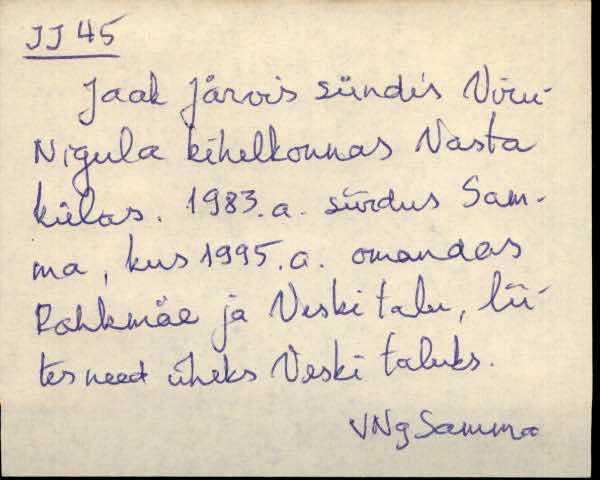 JJ 45
Jaak Järvis sündis Viru-
Nigula kihelkonnas Vasta
külas. 1983.a. siirdus Sam-
ma, kus 1995.a. omandas
Rahkmäe ja Veski talu, lii-
tes need üheks Veski taluks.
VNg Samma